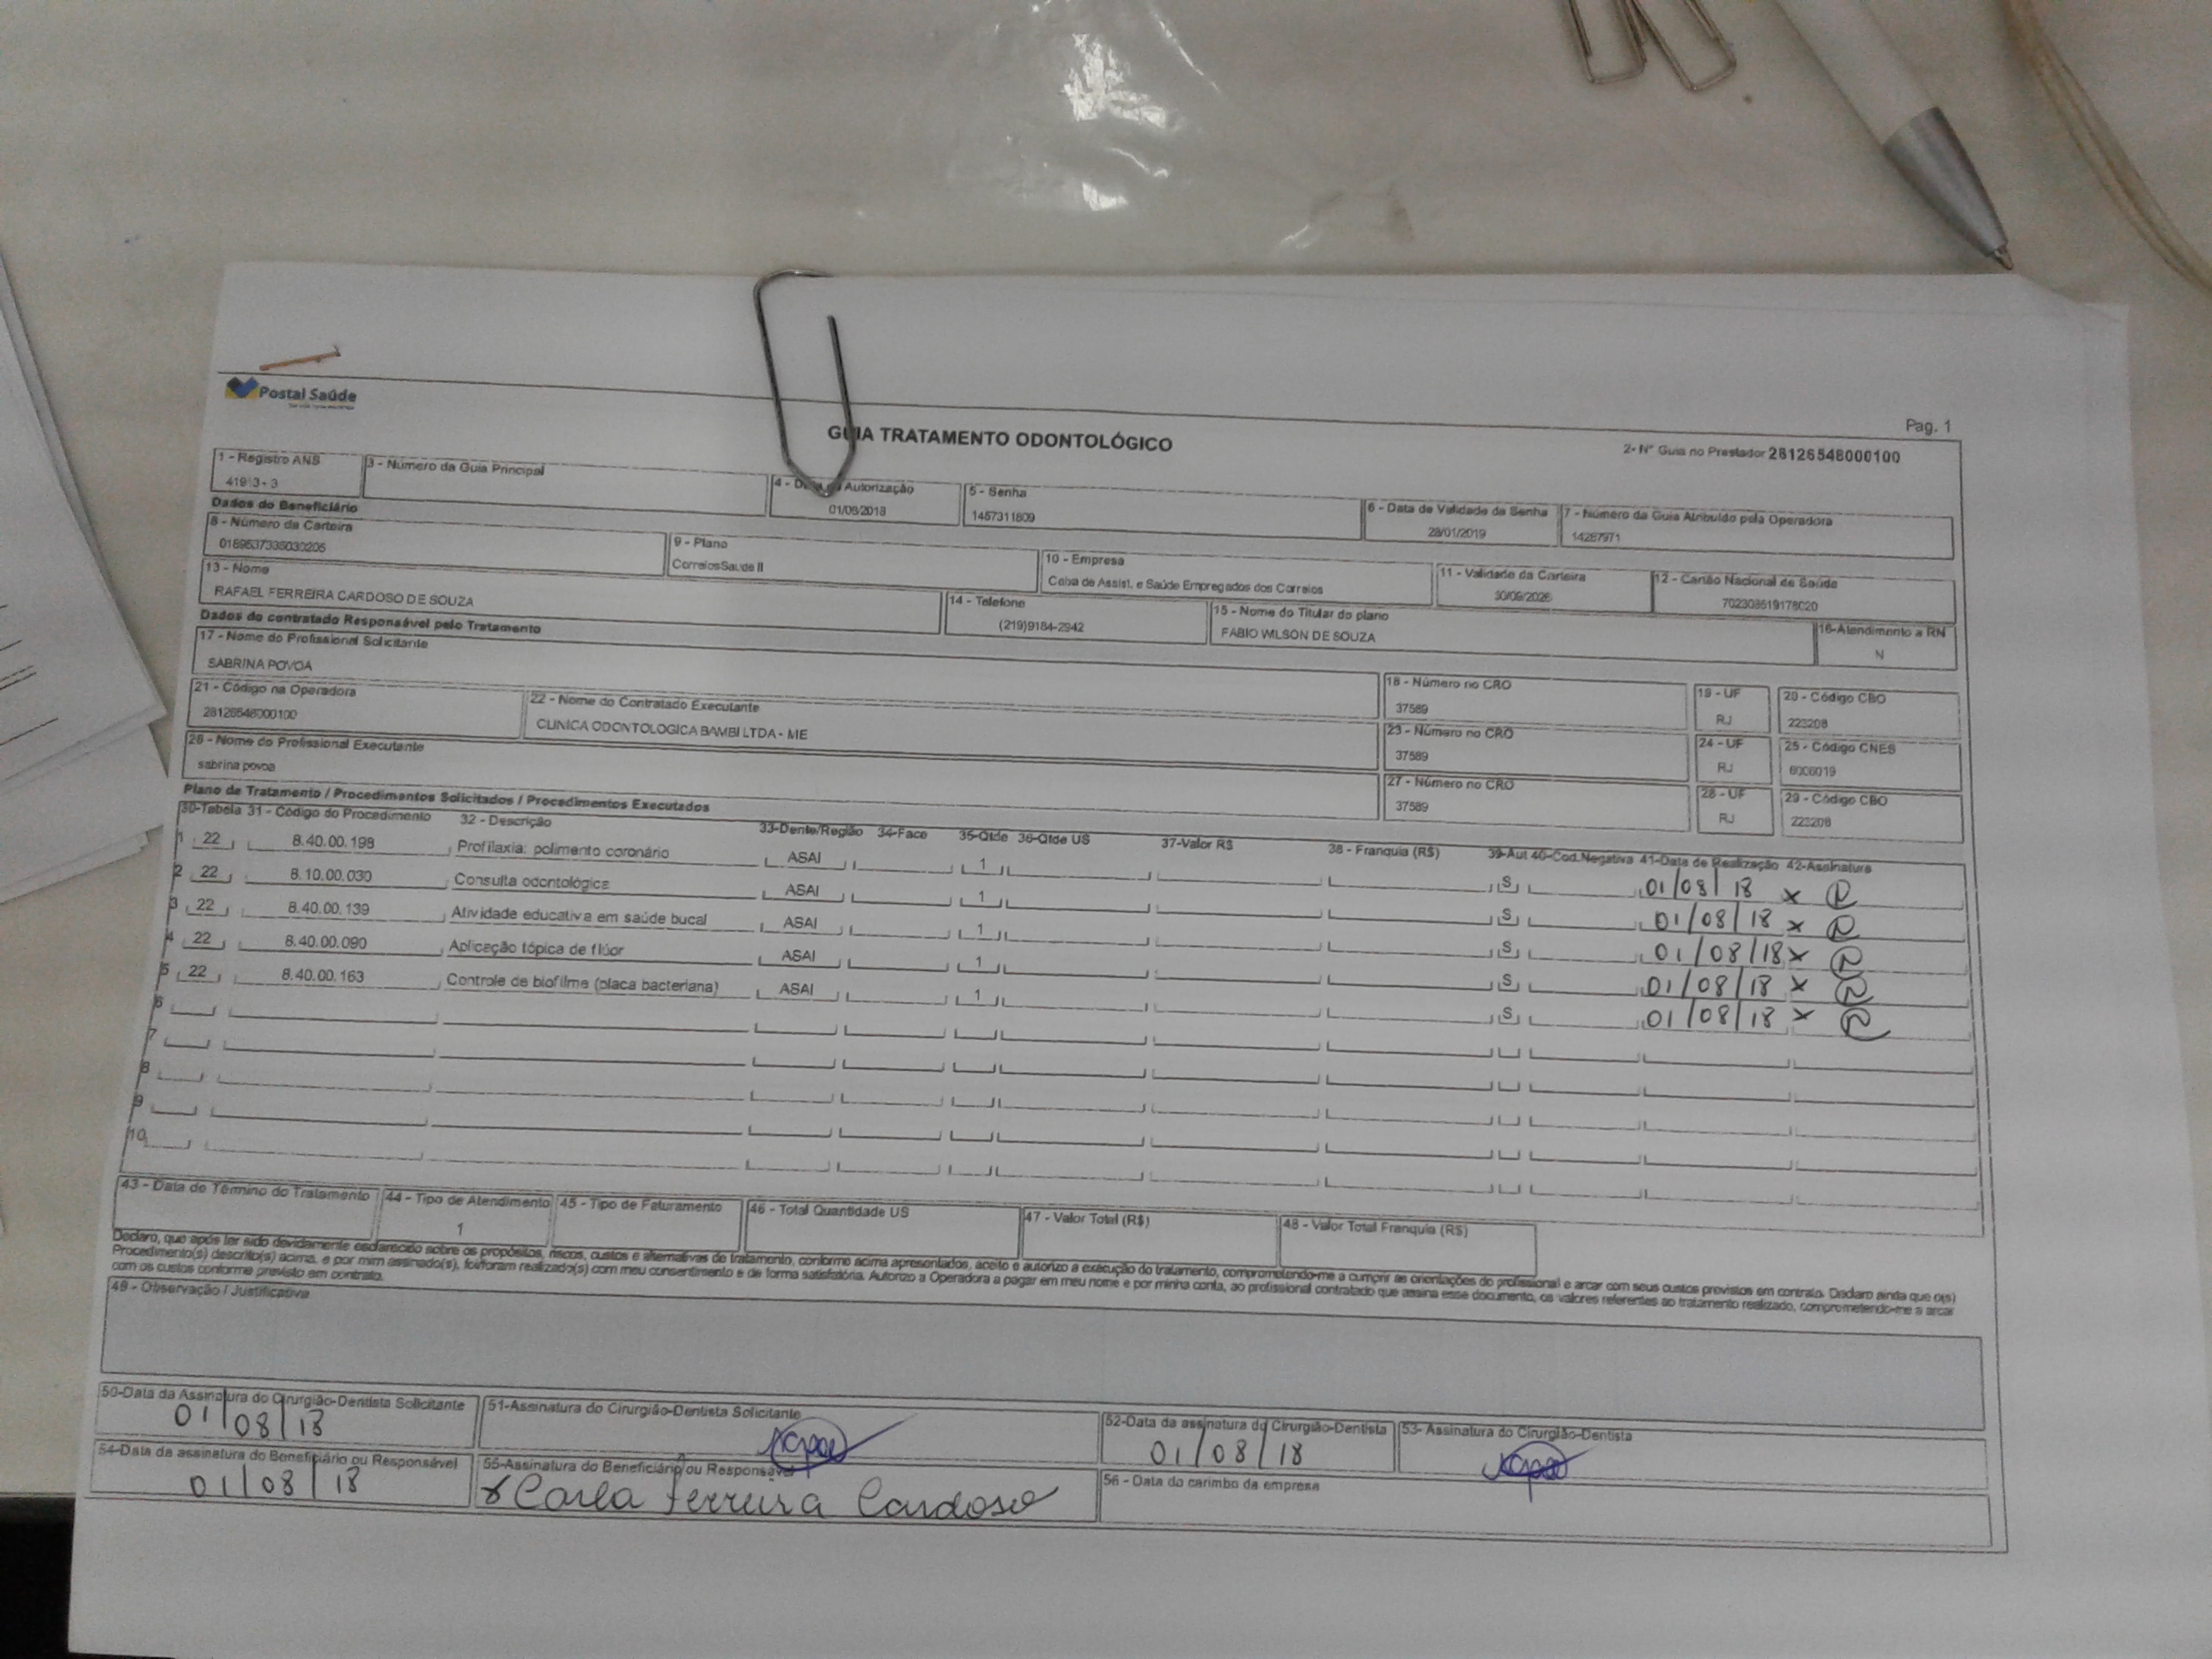 Postal Saúde
Pag. 1
GUIA TRATAMENTO ODONTOLÓGICO
2- Nº Guia no Prestador 28126548000100
1 - Registro ANS
41913-3
3 - Número da Guia Principal
4 - Data da Autorização
01/08/2018
5 - Senha
1457311809
6 - Data de Validade da Senha
28/01/2019
7 - Número da Guia Atribuído pela Operadora
14287971
Dados do Beneficiário
8 - Número da Carteira
9 - Plano
CorreiosSaude II
10 - Empresa
Caixa de Assist. e Saúde Empregados dos Correios
11 - Validade da Carteira
12 - Cartão Nacional de Saúde
13 - Nome
RAFAEL FERREIRA CARDOSO DE SOUZA
14 - Telefone
(219)9184-2942
15 - Nome do Titular do plano
FABIO WILSON DE SOUZA
16-Atendimento a RN
N
Dados do contratado Responsável pelo Tratamento
17 - Nome do Profissional Solicitante
SABRINA POVOA
18 - Número no CRO
37589
19 - UF
RJ
20 - Código CBO
223208
21 - Código na Operadora
28126548000100
22 - Nome do Contratado Executante
CLINICA ODONTOLOGICA BAMBI LTDA - ME
23 - Número no CRO
37589
24 - UF
RJ
25 - Código CNES
26 - Nome do Profissional Executante
sabrina povoa
27 - Número no CRO
37589
28 - UF
RJ
29 - Código CBO
223208
Plano de Tratamento / Procedimentos Solicitados / Procedimentos Executados
30-Tabela 31 - Código do Procedimento 32 - Descrição 33-Dente/Região 34-Face 35-Qtde 36-Qtde US 37-Valor R$ 38 - Franquia (R$) 39-Aut 40-Cod.Negativa 41-Data de Realização 42-Assinatura
1 22 8.40.00.198 Profilaxia: polimento coronário ASAI 1 S 01/08/18 x
2 22 8.10.00.030 Consulta odontológica ASAI 1 S 01/08/18 x
3 22 8.40.00.139 Atividade educativa em saúde bucal ASAI 1 S 01/08/18 x
4 22 8.40.00.090 Aplicação tópica de flúor ASAI 1 S 01/08/18 x
5 22 8.40.00.163 Controle de biofilme (placa bacteriana) ASAI 1 S 01/08/18 x
6
7
8
9
10
43 - Data de Término do Tratamento
44 - Tipo de Atendimento
1
45 - Tipo de Faturamento
46 - Total Quantidade US
47 - Valor Total (R$)
48 - Valor Total Franquia (R$)
Declaro, que após ter sido devidamente esclarecido sobre os propósitos, riscos, custos e alternativas de tratamento, conforme acima apresentados, aceito e autorizo a execução do tratamento, comprometendo-me a cumprir as orientações do profissional e arcar com seus custos previstos em contrato. Declaro ainda que o(s)
Procedimento(s) descrito(s) acima, e por mim assinado(s), foi/foram realizado(s) com meu consentimento e de forma satisfatória. Autorizo a Operadora a pagar em meu nome e por minha conta, ao profissional contratado que assina esse documento, os valores referentes ao tratamento realizado, comprometendo-me a arcar
com os custos conforme previsto em contrato.
49 - Observação / Justificativa
50-Data da Assinatura do Cirurgião-Dentista Solicitante
01/08/18
51-Assinatura do Cirurgião-Dentista Solicitante
52-Data da assinatura do Cirurgião-Dentista
01/08/18
53- Assinatura do Cirurgião-Dentista
54-Data da assinatura do Beneficiário ou Responsável
01/08/18
55-Assinatura do Beneficiário ou Responsável
x Carla Ferreira Cardoso
56 - Data do carimbo da empresa